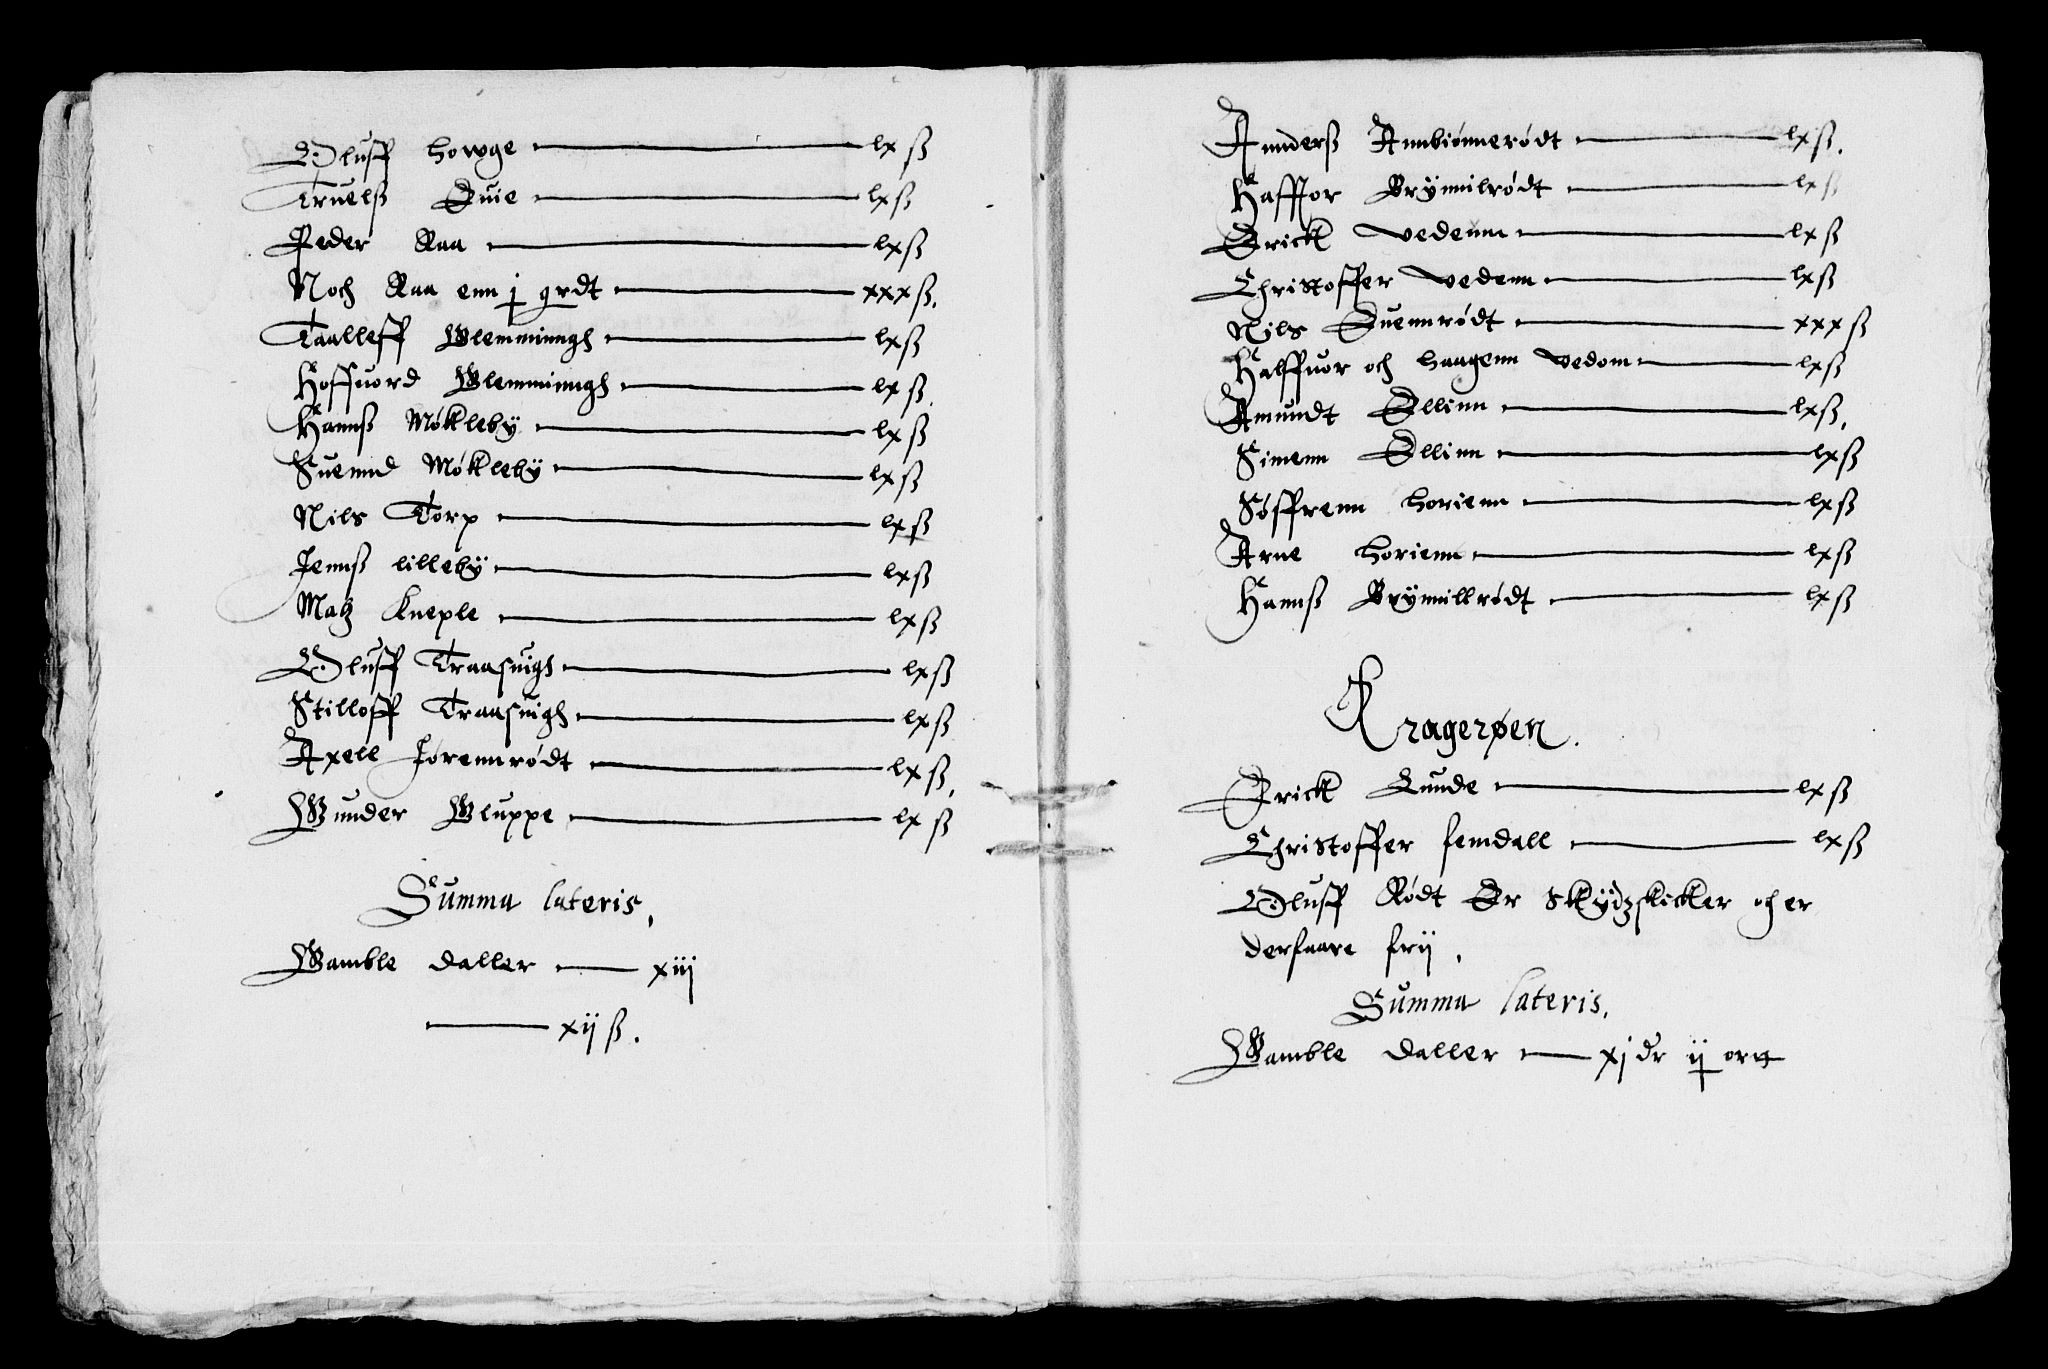 Oluff Howge — lx ß
Truelß Quie — lx ß
Peder Raa — lx ß
Noch Raa enn j grdt — xxx ß.
Taalleff Blemmingh — lx ß
Hoffuord Blemmingh — lx ß
Hannß Møkleby — lx ß
Suennd Møkleby — lx ß
Nils Torp — lx ß
Jennß lilleby — lx ß
Matz Kneple — lx ß
Oluff Traasuigh — lx ß
Stilloff Traasuigh — lx ß
Axell Jørennrødt — lx ß.
Gunder Gluppe — lx ß
Summa lateris,
Gamble daller — xiij
— xij ß.
Annderß Annbiønnerødt — lx ß.
Haffuor Brynnilrødt — lx ß
Erick Vedenn — lx ß
Christoffer Vedenn — lx ß
Nils Suennrødt — xxx ß
Halffuor och Haagenn Vedom — lx ß
Amundt Ellinn — lx ß.
Simenn Ellinn — lx ß
Søffrenn Horienn — lx ß
Arne Horienn — lx ß
Hannß Brynnillrødt — lx ß
Kragerøen.
Erick Lunde — lx ß
Christoffer femdall — lx ß
Oluff Rødt Er Skydzskicker och er
derfaare frij.
Summa lateris.
Gamble daller — xj dr ij ort